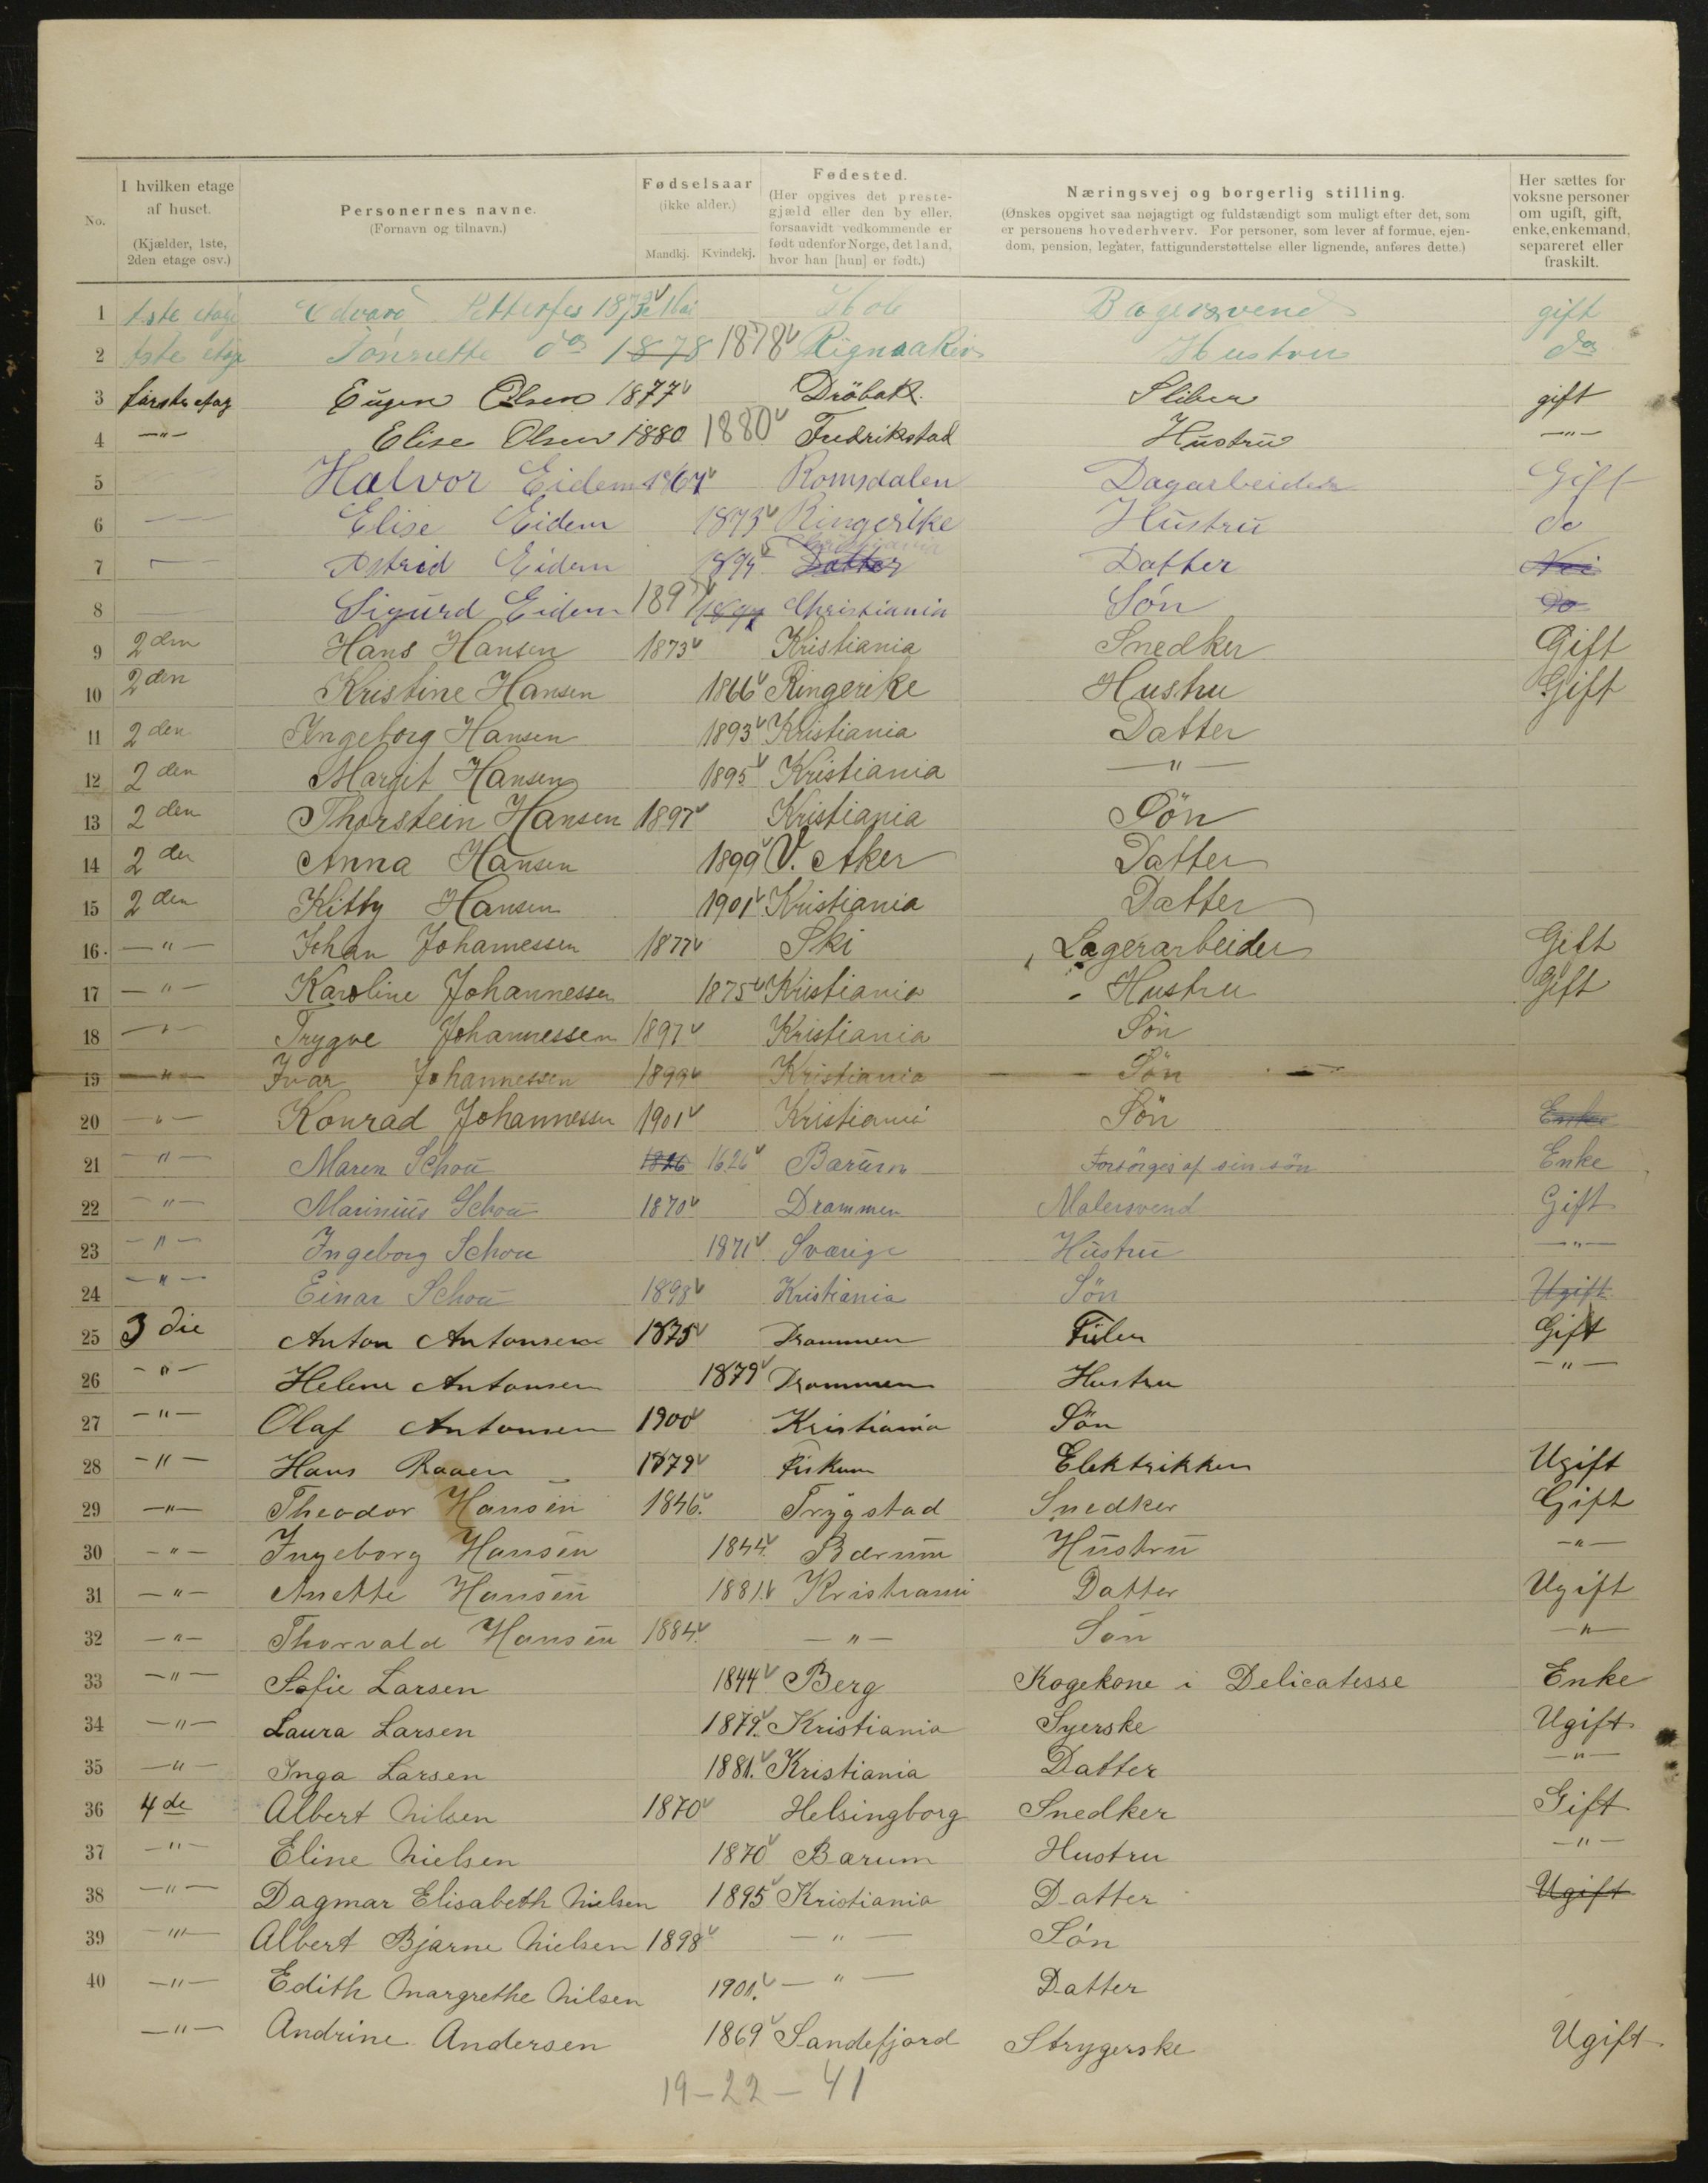 No.
I hvilken etage af huset. (Kjælder, 1ste, 2den etage osv.)
Personernes navne. (Fornavn og tilnavn.)
Fødselsaar (ikke alder.) Mandkj. Kvindekj.
Fødested. (Her opgives det prestegjæld eller den by eller, forsaavidt vedkommende er født udenfor Norge, det land, hvor han [hun] er født.)
Næringsvej og borgerlig stilling. (Ønskes opgivet saa nøjagtigt og fuldstændigt som muligt efter det, som er personens hovederhverv. For personer, som lever af formue, ejendom, pension, legater, fattigunderstøttelse eller lignende, anføres dette.)
Her sættes for voksne personer om ugift, gift, enke, enkemand, separeret eller fraskilt.
1 1ste etage Edvard Hole Bagersvend gift
2 1ste etage do 1878 1878 Hustru do
3 første etag Eugen Olsen 1877 Dröbak Sliber gift
4 -"- Elise Olsen 1880 1880 Fredrikstad Hustru -"-
5 Halvor Eidem 1864 Romsdalen Dagarbeider Gift
6 Elise Eidem 1873 Ringerike Hustru do
7 Astrid Eidem 1894 Datter Christiania Datter Nei
8 Sigurd Eidem 1897 1897 Christiania Sön do
9 2den Hans Hansen 1873 Kristiania Snedker Gift
10 2den Kristine Hansen 1866 Ringerike Hustru Gift
11 2den Ingeborg Hansen 1893 Kristiania Datter
12 2den Margit Hansen 1895 Kristiania -"-
13 2den Thorstein Hansen 1897 Kristiania Sön
14 2den Anna Hansen 1899 V. Aker Datter
15 2den Kitty Hansen 1901 Kristiania Datter
16 -"- Johan Johannessen 1877 Ski Lagerarbeider Gift
17 -"- Karoline Johannessen 1875 Kristiania Hustru Gift
18 -"- Trygve Johannessen 1897 Kristiania Sön
19 -"- Ivar Johannessen 1899 Kristiania Sön
20 -"- Konrad Johannessen 1901 Kristiania Sön Enke
21 -"- Maren Schou 1826 1626 Barum Forsörges af sin sön Enke
22 -"- Marinius Schou 1870 Drammen Malersvend Gift
23 -"- Ingeborg Schou 1871 Sværige Hustru -"-
24 -"- Einar Schou 1898 Kristiania Sön Ugift
25 3die Anton Antonsen 1875 Drammen Filer Gift
26 -"- Helene Antonsen 1879 Drammen Hustru -"-
27 -"- Olaf Antonsen 1900 Kristiania Sön
28 -"- Hans Raaen 1879 Fiskum Elektrikker Ugift
29 -"- Theodor Hansen 1846. Trygstad Snedker Gift
30 -"- Ingeborg Hansen 1844. Bærum Hustru -"-
31 -"- Anette Hansen 1881. Kristiani Datter Ugift
32 -"- Thorvald Hansen 1884. -"- Sön -"-
33 -"- Sofie Larsen 1844 Berg Kogekone i Delicatesse Enke
34 -"- Laura Larsen 1879. Kristiania Syerske Ugift
35 -"- Inga Larsen 1881. Kristiania Datter -"-
36 4de Albert Nilsen 1870 Helsingborg Snedker Gift
37 -"- Eline Nielsen 1870 Barum Hustru -"-
38 -"- Dagmar Elisabeth Nielsen 1895 Kristiania Datter Ugift
39 -"- Albert Bjarne Nielsen 1898 -"- Sön
40 -"- Edith Margrethe Nilsen 1901. -"- Datter
-"- Andrine Andersen 1869 Sandefjord Strygerske Ugift
19-22-41